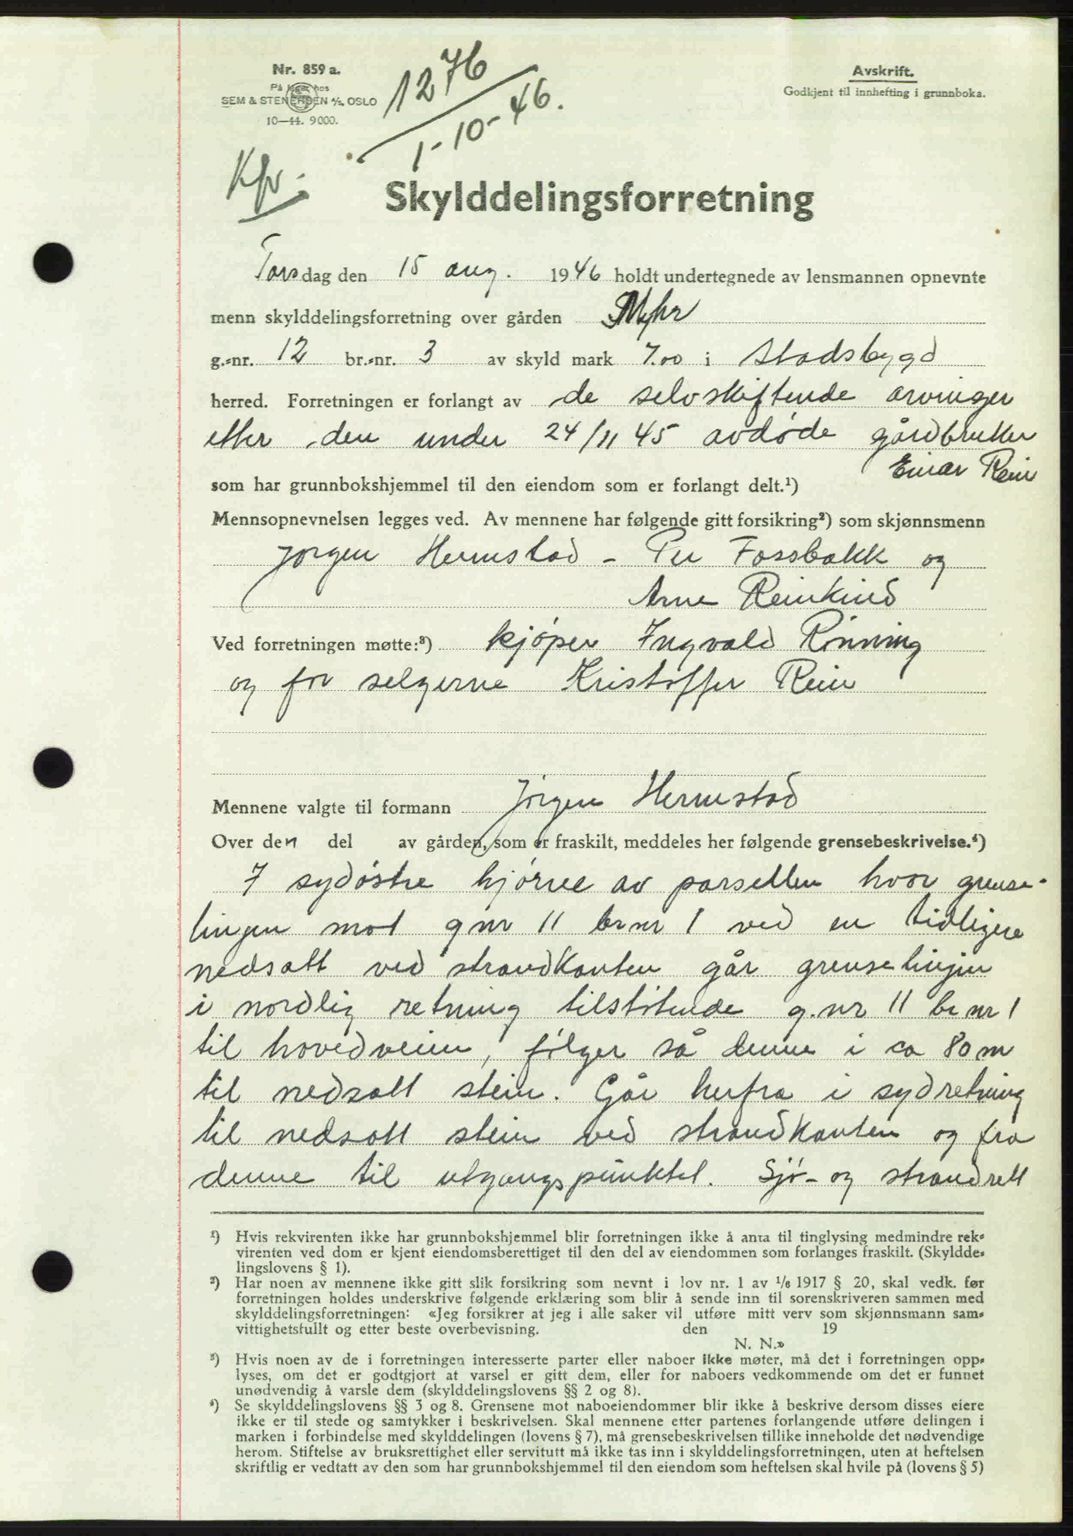 Nr. 859 a.
På lager hos
SEM & STENERSEN A/S, OSLO
10—44. 9000.
1276
1-10-46.
Avskrift.
Godkjent til innhefting i grunnboka.
Kfr.
Skylddelingsforretning
Torsdag den 15 aug. 1946 holdt undertegnede av lensmannen opnevnte
menn skylddelingsforretning over gården Myhr
g.-nr. 12 br.-nr. 3 av skyld mark 7.00 i Stadsbygd
herred. Forretningen er forlangt av de selvskiftende arvinger
etter den under 24/11 45 avdøde gårdbruker
Einar Rein
som har grunnbokshjemmel til den eiendom som er forlangt delt.¹)
Mennsopnevnelsen legges ved. Av mennene har følgende gitt forsikring²) som skjønnsmenn
Jørgen Hermstad - Per Fossbakk og
Arne Reinkind
Ved forretningen møtte:³) kjøper Ingvald Rønning
og for selgerne Kristoffer Rein
Mennene valgte til formann Jörgen Hermstad
Over den del av gården, som er fraskilt, meddeles her følgende grensebeskrivelse.⁴)
I sydøstre hjørne av parsellen hvor grense-
linjen mot gnr 11 br nr 1 ved en tidligere
nedsatt ved strandkanten går grenselinjen
i nordlig retning tilstøtende g.nr 11 br nr 1
til hovedveien, følger så denne i ca 80 m
til nedsatt stein. Går herfra i sydretning
til nedsatt stein ved strandkanten og fra
denne til utgangspunktet. Sjø- og strandrett
¹) Hvis rekvirenten ikke har grunnbokshjemmel blir forretningen ikke å anta til tinglysing medmindre rek-
virenten ved dom er kjent eiendomsberettiget til den del av eiendommen som forlanges fraskilt. (Skyldde-
lingslovens § 1).
²) Har noen av mennene ikke gitt slik forsikring som nevnt i lov nr. 1 av 1/6 1917 § 20, skal vedk. før
forretningen holdes underskrive følgende erklæring som blir å sende inn til sorenskriveren sammen med
skylddelingsforretningen: «Jeg forsikrer at jeg i alle saker vil utføre mitt verv som skjønnsmann sam-
vittighetsfullt og etter beste overbevisning. den 19
N. N.»
³) Hvis noen av de i forretningen interesserte parter eller naboer ikke møter, må det i forretningen opp-
lyses, om det er godtgjort at varsel er gitt dem, eller for naboers vedkommende om det er funnet
unødvendig å varsle dem (skylddelingslovens §§ 2 og 8).
⁴) Se skylddelingslovens §§ 3 og 8. Grensene mot naboeiendommer blir ikke å beskrive dersom disses eiere
ikke er til stede og samtykker i beskrivelsen. Skal mennene etter partenes forlangende utføre delingen i
marken i forbindelse med skylddelingen (lovens § 7), må grensebeskrivelsen tillike inneholde det nødvendige
herom. Stiftelse av bruksrettighet eller servitutt må ikke tas inn i skylddelingsforretningen, uten at heftelsen
skriftlig er vedtatt av den som har grunnbokshjemmel til den eiendom som heftelsen skal hvile på (lovens § 5)